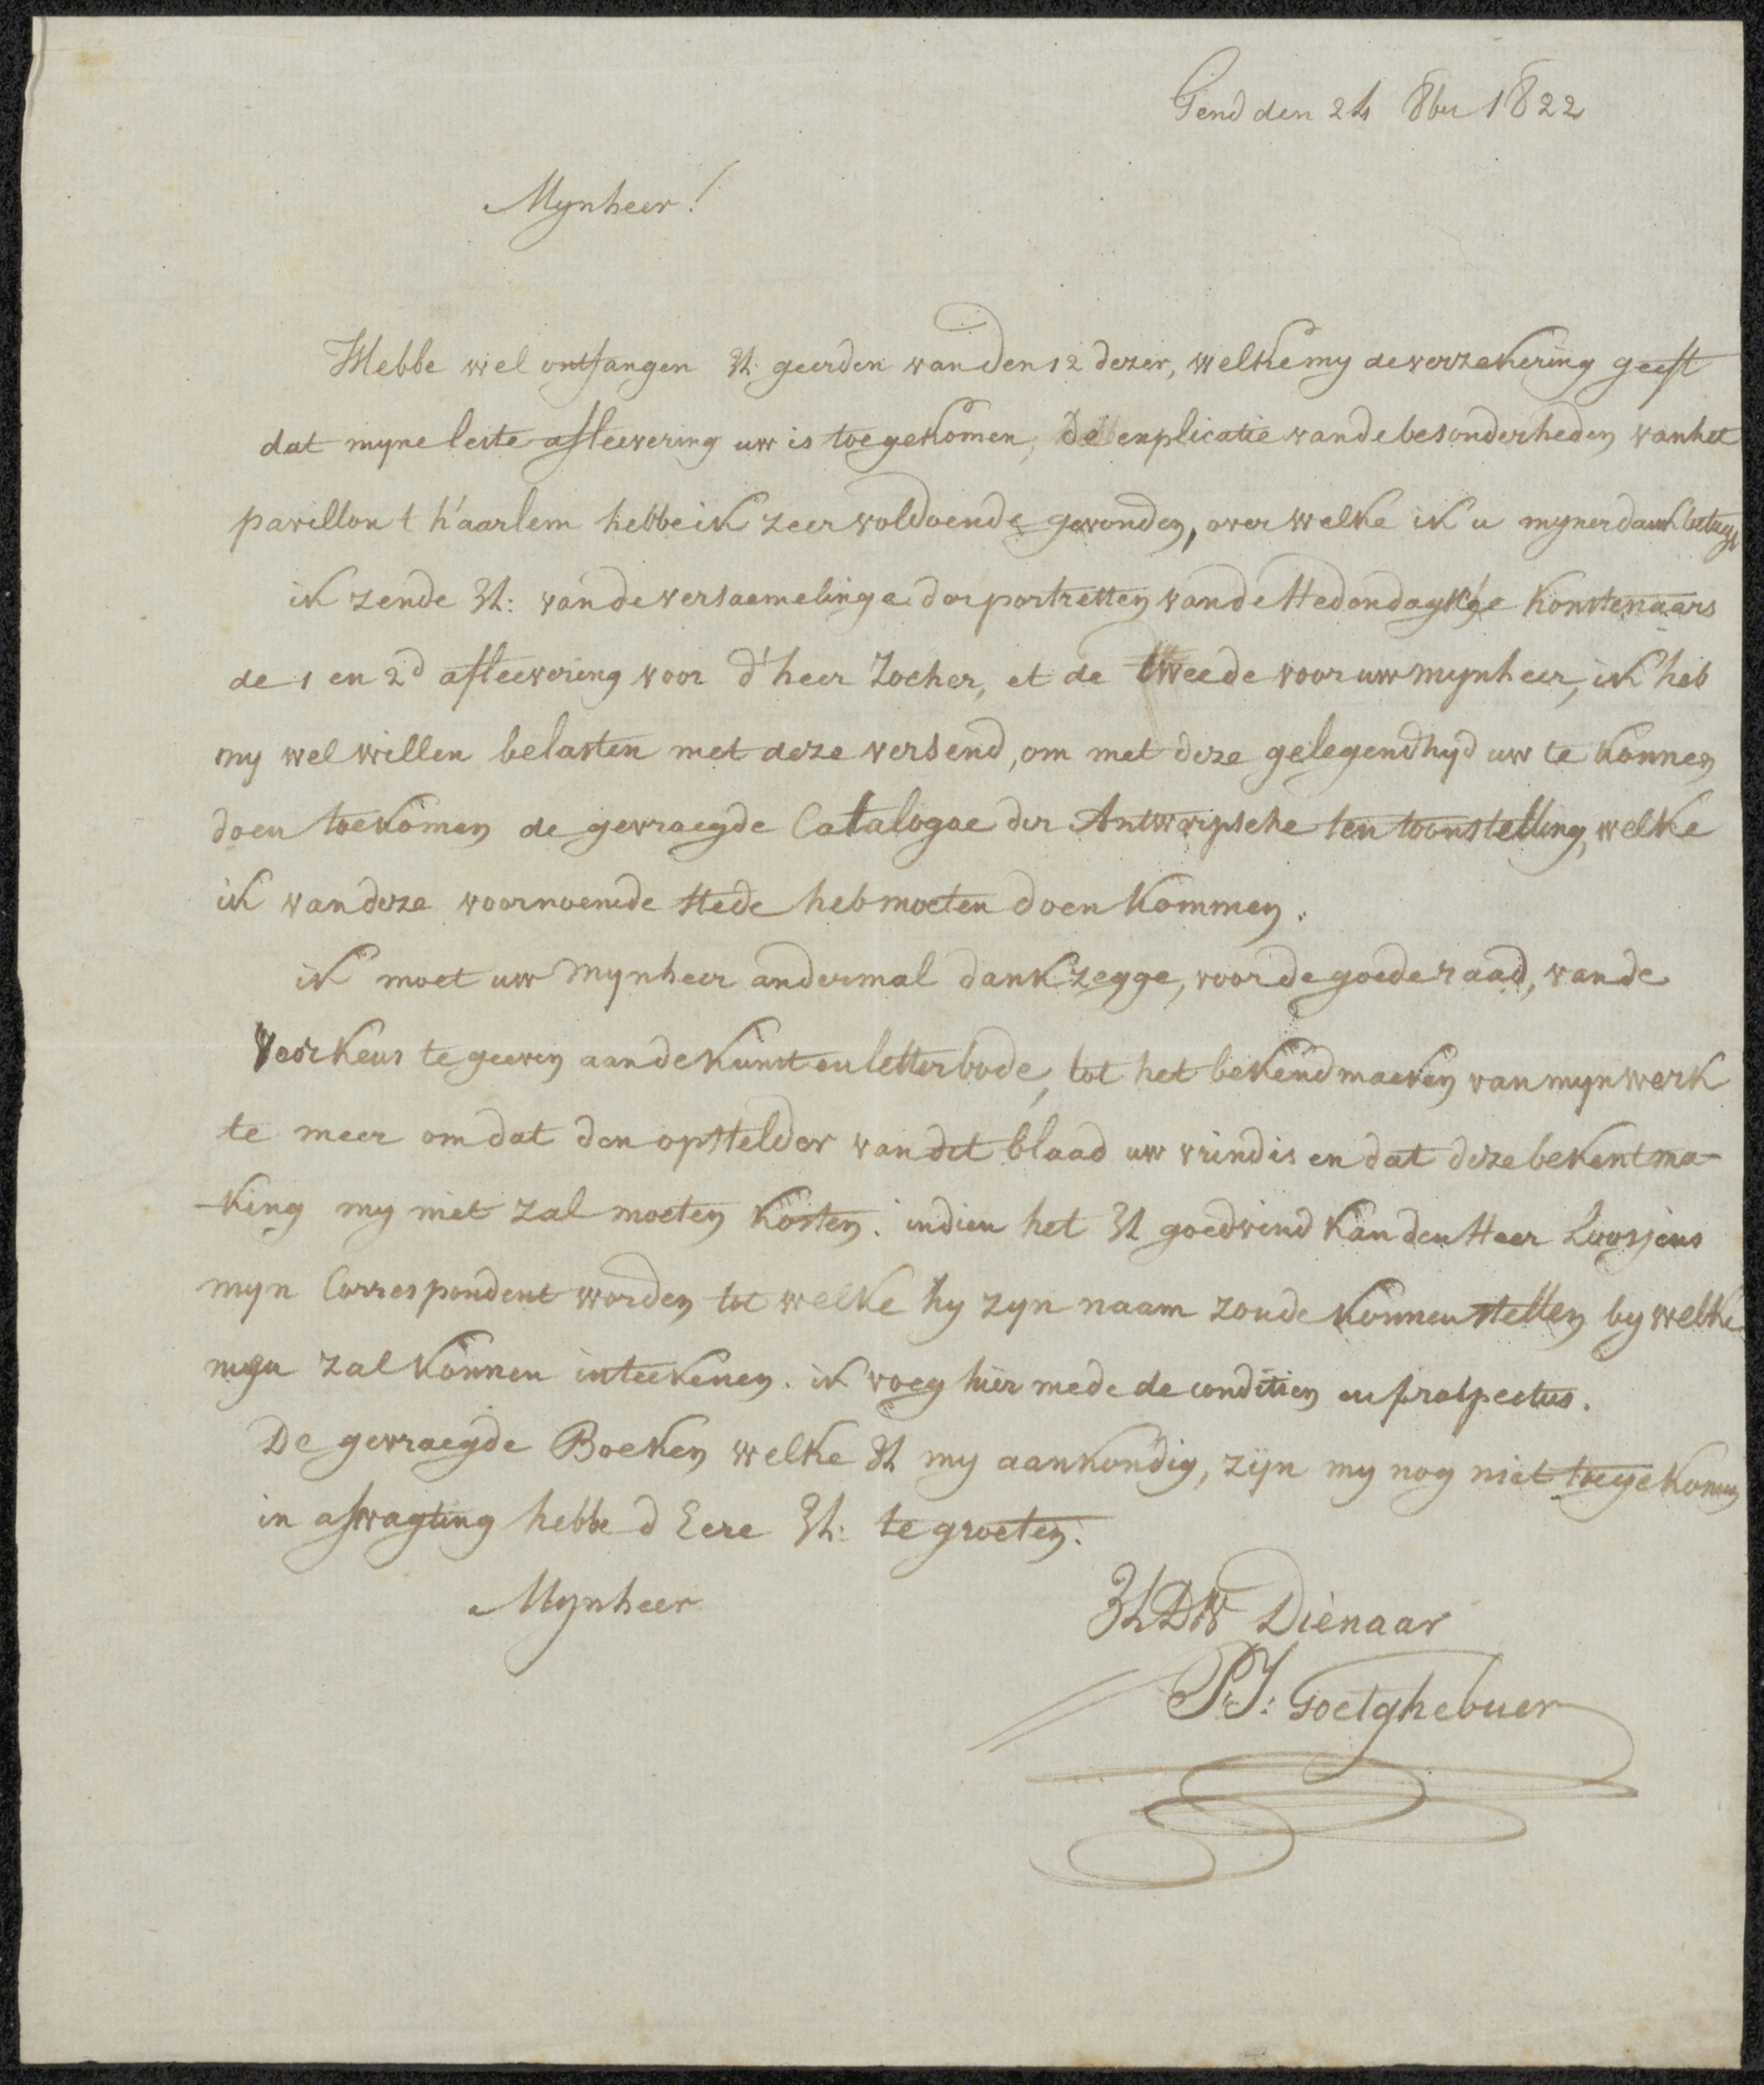 Gend den 24 8ber 1822
Mynheer!
Hebbe wel ontfangen Ul. geerden van den 12 dezer, welke my de verzekering geeft
dat myne leste afleevering uw is toegekomen, de explicatie van de besonderheden van het
pavillon t h'aarlem hebbe ik zeer voldoende gevonden, over welke ik u myner dank betuyg
ik zende Ul: van de versaemelinge der portretten van de Hedendagsche Konstenaars
de 1 en 2d afleevering voor d'heer Zocher, et de tweede voor uw mynheer, ik heb
my wel willen belasten met deze versend, om met deze gelegendhyd uw te konnen
doen toekomen de gevraegde Catalogae der Antwerpsche ten toonstelling, welke
ik van deze voornoemde stede heb moeten doen kommen.
ik moet uw mynheer andermal dank zegge, voor de goede raad, van de
voorkeur te geeven aan de Kunst en letterbode, tot het bekendmaeken van myn werk
te meer om dat den opstelder van dit blaad uw vrind is en dat deze bekentma-
-king my niet zal moeten kosten. indien het Ul goedvind kan den Heer Loosjens
myn Correspondent worden tot welke hy zyn naam zoude konnen stellen by welke
men zal konnen inteekenen. ik voeg hier mede de conditien en prospectus.
De gevraegde Boeken welke Ul my aankondig, zijn my nog niet toegekomen
in afwagting hebbe d Eere Ul: te groeten.
Mynheer
Ul DW Dienaar
P.J. Goetghebuer